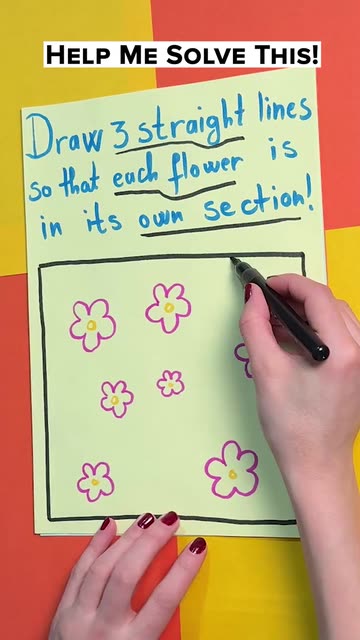 HELP ME SOLVE THIS!
Draw 3 straight lines
so that each flower is
in its own section!